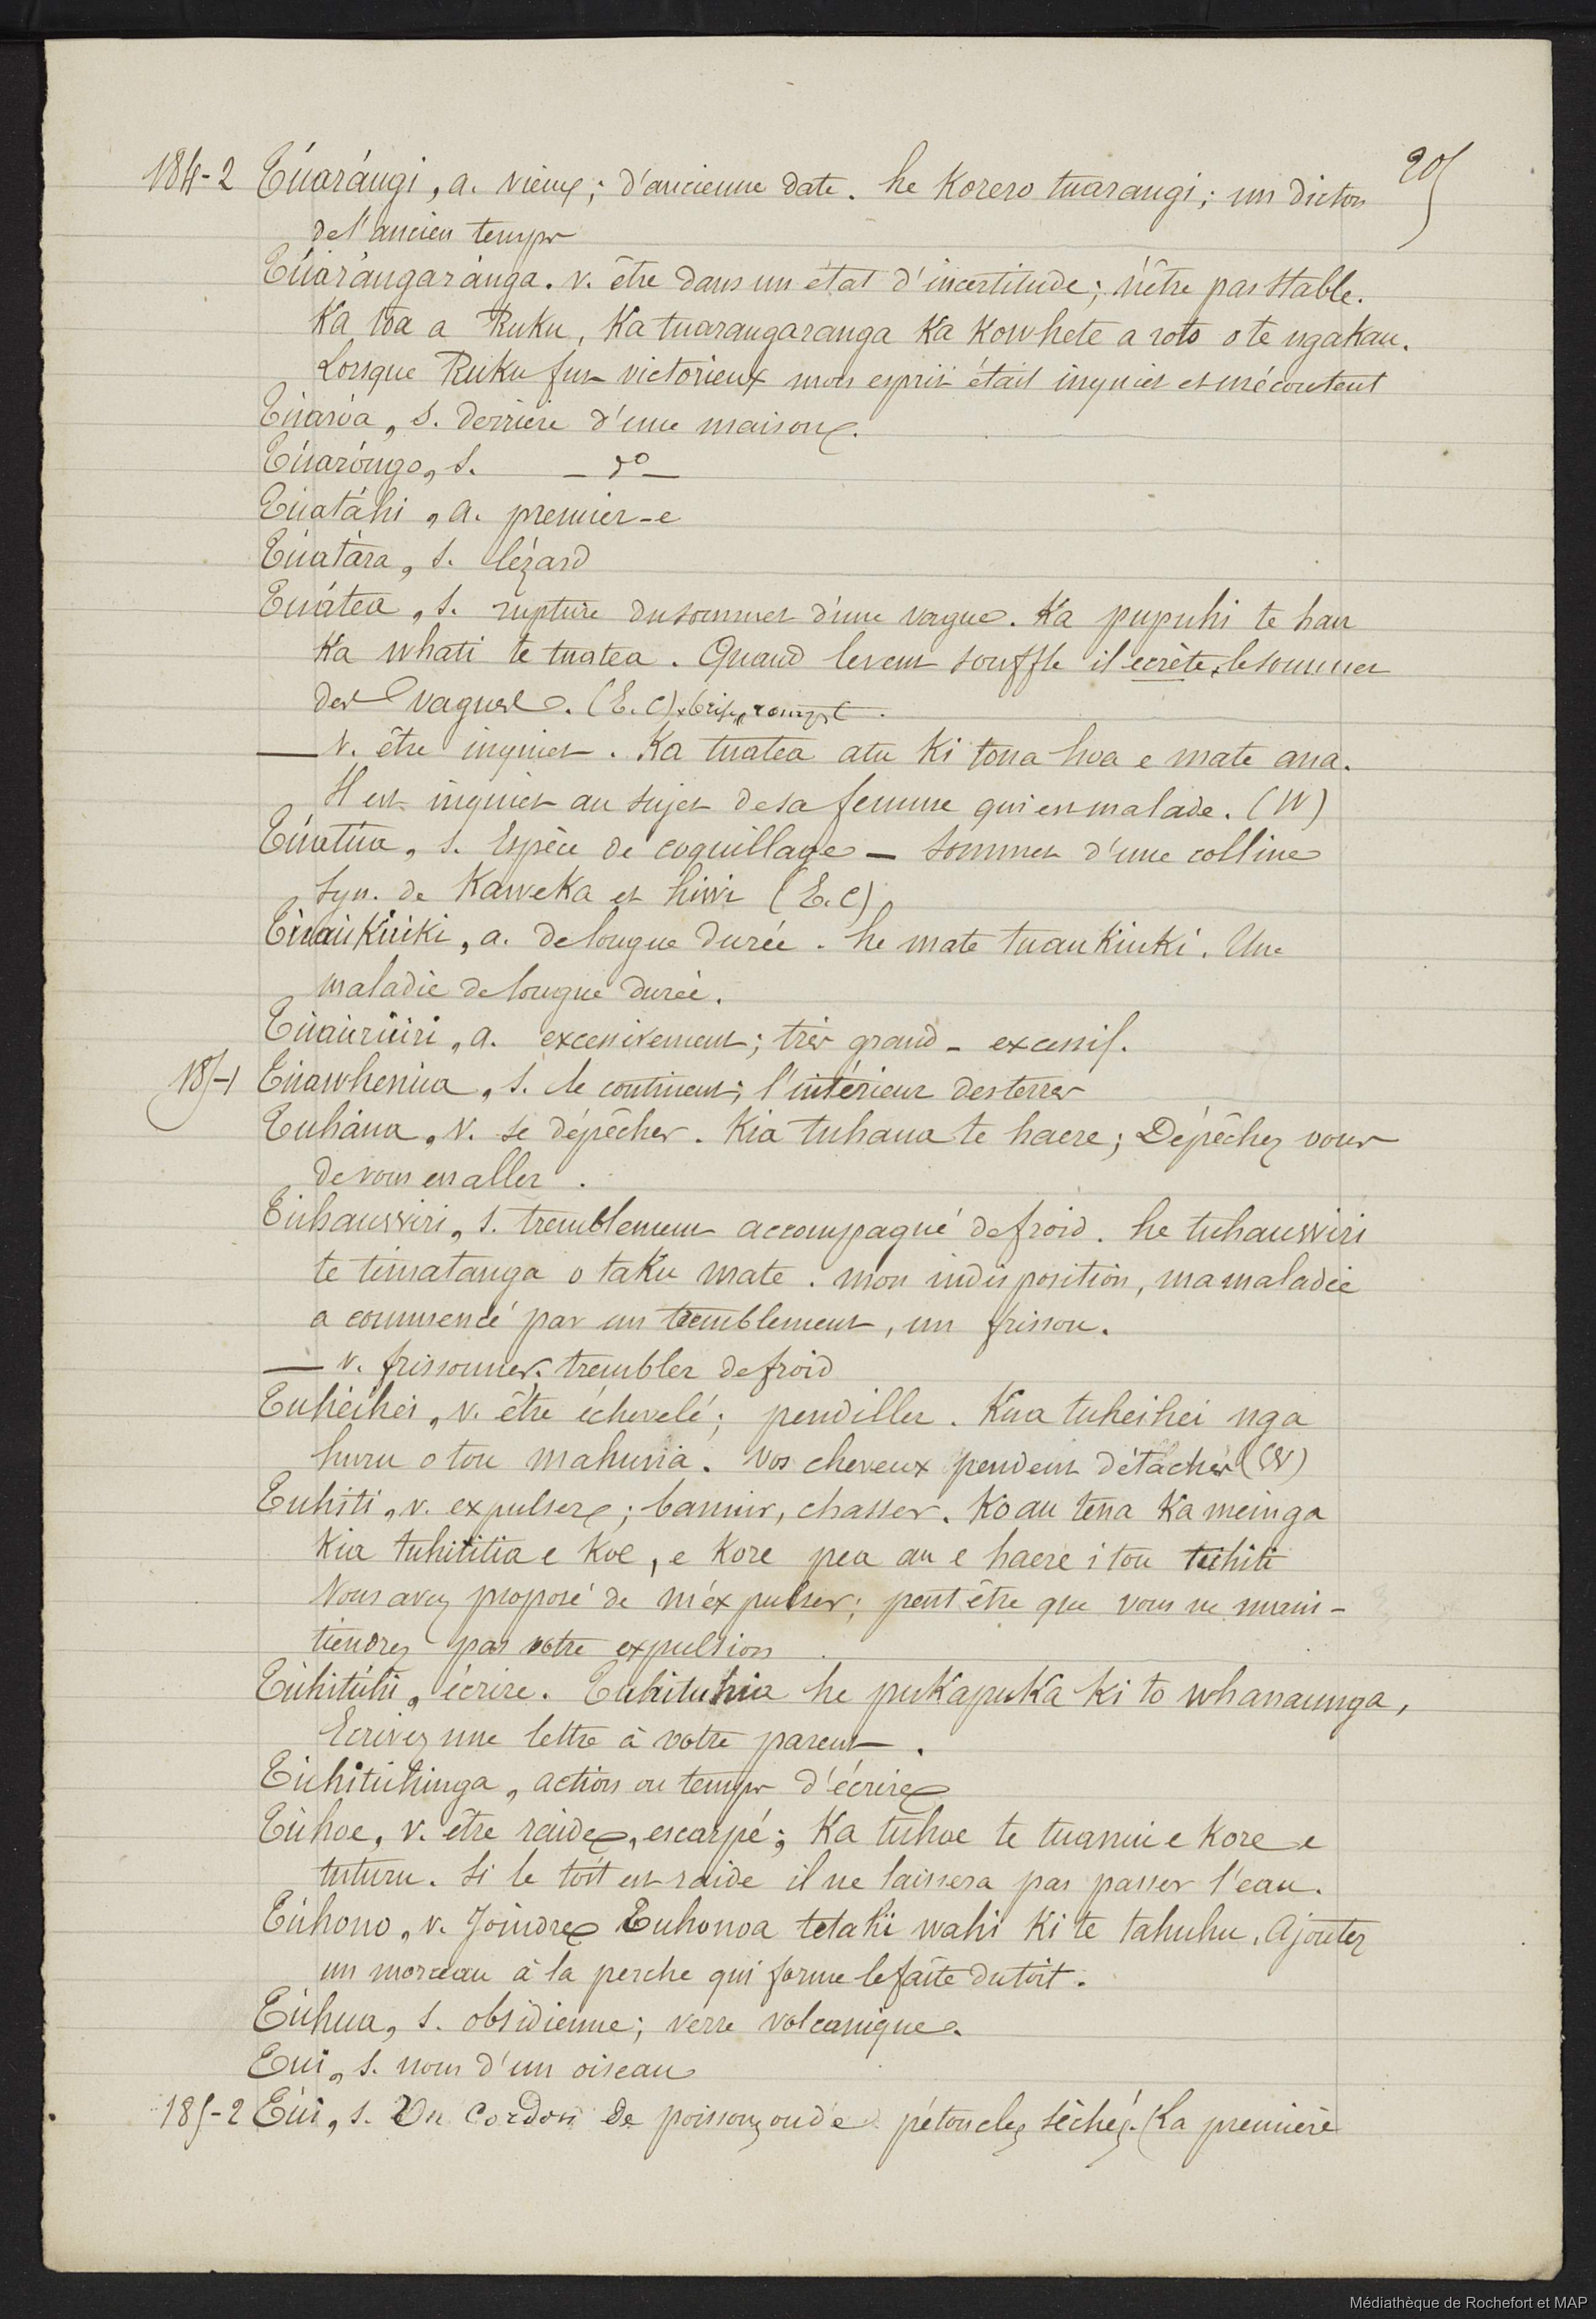 205
184-2 Túarángi, a. vieux; d'ancienne date. he Korero tuarangi; un dicton
de l'ancien temps
Túarángaránga. v. être dans un état d'incertitude; n'être pas stable.
Ka toa a Ruku, Ka tuarangaranga Ka Kowhete a roto o te ngakau.
Lorsque Ruku fut victorieux mon esprit était inquiet et mécontent
Túaróa, s. derrière d'une maison.
Túaróngo, s. — do —
Túatáhi, a. premier-e
Túatàra, s. lézard
Tuátea, s. rupture du sommet d'une vague. Ka pupuhi te hau
Ka whati te tuatea. Quand le vent souffle il écrète x le sommet
des vagues. (E.C) x brise, rompt.
— v. être inquiet. Ka tuatea atu Ki tona hoa e mate ana.
Il est inquiet au sujet de sa femme qui est malade. (W)
Túatúa, s. Espèce de coquillage — sommet d'une colline
syn. de Kaweka et hiwi (E.C)
Tùaùkiúki, a. de longue durée. he mate tuaukiuki. Une
maladie de longue durée.
Tùaùriúri, a. excessivement; très grand - excessif.
185-1 Túawhenúa, s. le continent; l'intérieur des terres
Tuháua, v. se dépêcher. Kia tuhaua te haere; Dépêchez vous
de vous en aller.
Túhauwiri, s. tremblement accompagné de froid. he tuhauwiri
te timatanga o taku mate. mon indisposition, ma maladie
a commencé par un tremblement, un frisson.
— v. frissonner; trembler de froid
Tuhéihéi, v. être échevelé; pendiller. Kua tuheihei nga
huru o tou mahunia. Vos cheveux pendent détachés (W)
Tuhiti, v. expulser; bannir, chasser. Ko au tena Ka meinga
Kia tuhititia e koe, e Kore pea au e haere i tou tuhiti
Vous avez proposé de m'éxpulser; peut être que vous ne main-
tiendrez pas votre expulsion
Túhitúhi, écrire. Tuhituhia he pukapuka ki to whanaunga,
Ecrivez une lettre à votre parent.
Túhitúhinga, action ou temps d'écrire
Túhoe, v. être raide, escarpé; Ka tuhoe te tuanui e Kore e
tuturu. Si le toît est raide il ne laissera pas passer l'eau.
Túhono, v. Joindre Tuhonoa tetahi wahi ki te tahuhu. Ajoutez
un morceau à la perche qui forme le faîte du toit.
Túhua, s. obsidienne; verre volcanique.
Tui, s. nom d'un oiseau
185-2 Túi, s. Un Cordon de poissons ou de pétoncles séchés. (La première
Médiathèque de Rochefort et MAP